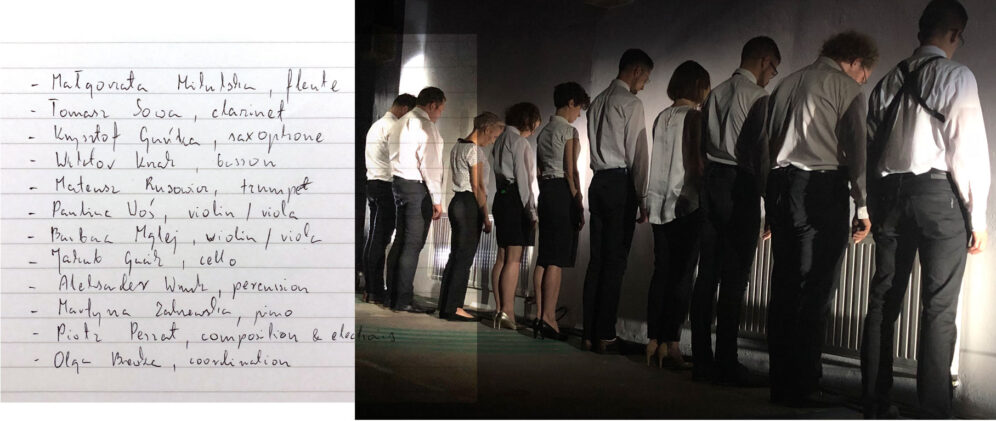 - Małgorzata Mikulska, fleute
- Tomasz Sowa, clarinet
- Krzysztof Guńka, saxophone
- Wiktor Krak, basson
- Mateusz Rusowicz, trumpet
- Paulina Woś, violin / viola
- Barbara Mglej, violin / viola
- Jakub Gucik, cello
- Aleksander Wnuk, percusion
- Martyna Zakrzewska, piano
- Piotr Peszat, composition & electronics
- Olga , coordination